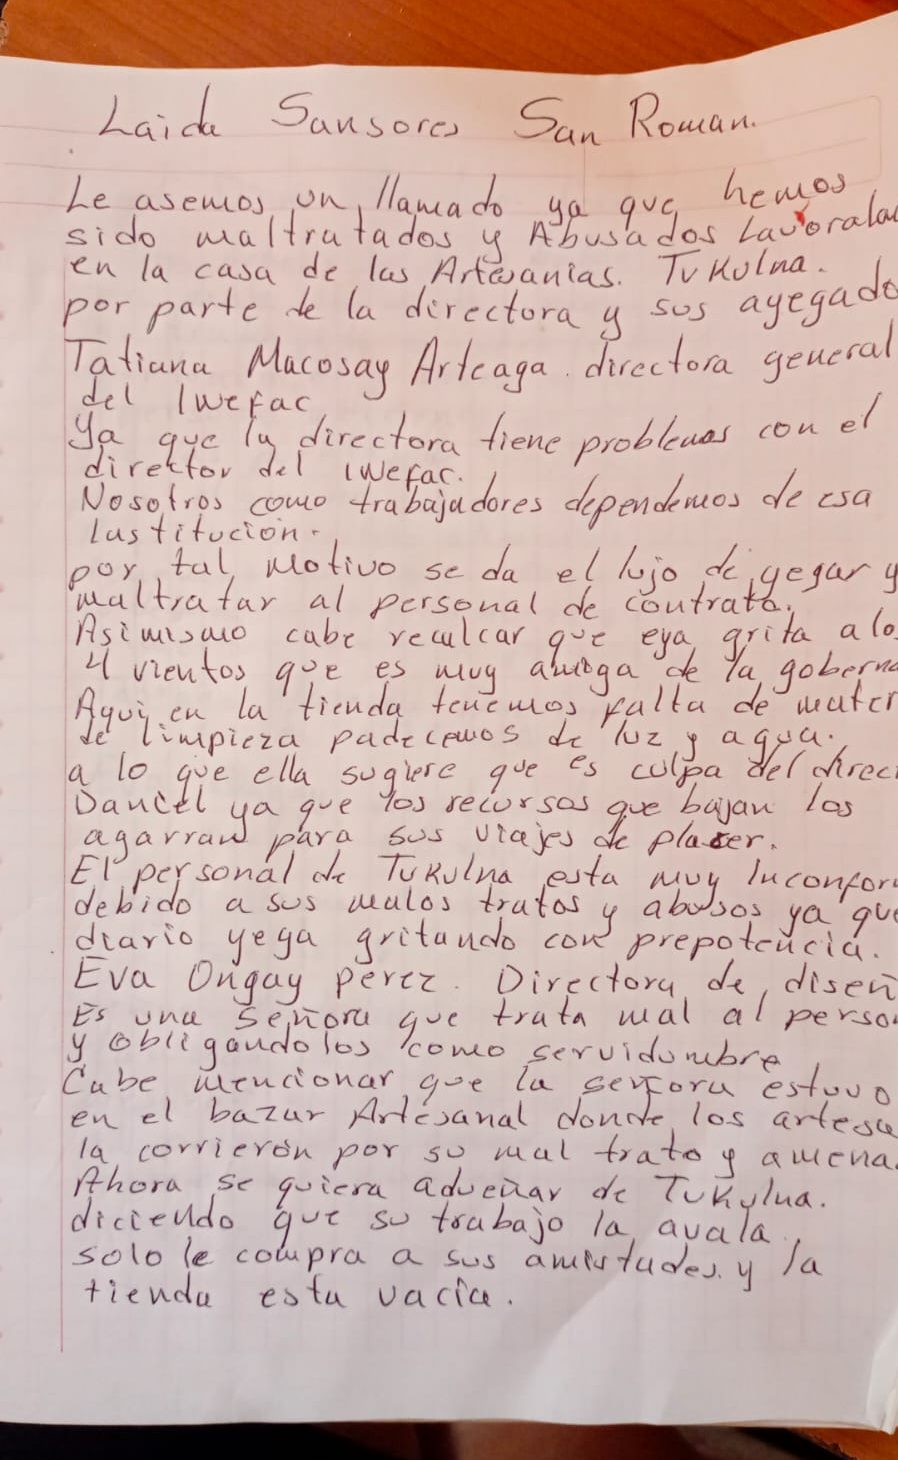 Laida Sansores San Roman.
Le asemos un llamado ya que hemos
sido maltratados y Abusados Lavoralm
en la casa de las Artesanias. Tukulna.
por parte de la directora y sus ayegado
Tatiana Macosay Arteaga. directora general
del Iwefac
Ya que la directora tiene problemas con el
director del Iwefac.
Nosotros como trabajadores dependemos de esa
Institución.
por tal motivo se da el lujo de yegar y
maltratar al personal de contrato.
Asimismo cabe recalcar que eya grita a lo
4 vientos que es muy amiga de la goberna
Aqui en la tienda tenemos falta de mater
de limpieza padecemos de luz y agua.
a lo que ella sugiere que es culpa del direc
Daniel ya que los recursos que bajan los
agarran para sus viajes de placer.
El personal de Tukulna esta muy Inconfor
debido a sus malos tratos y abusos ya que
diario yega gritando con prepotencia.
Eva Ongay perez. Directora de diseñ
Es una señora que trata mal al perso
y obligandolos como servidumbre
Cabe mencionar que la señora estuvo
en el bazar Artesanal donde los artesa
la corrierón por su mal trato y amena
Ahora se quiera adueñar de Tukulna.
diciendo que su trabajo la avala.
solo le compra a sus amistades y la
tienda esta vacía.